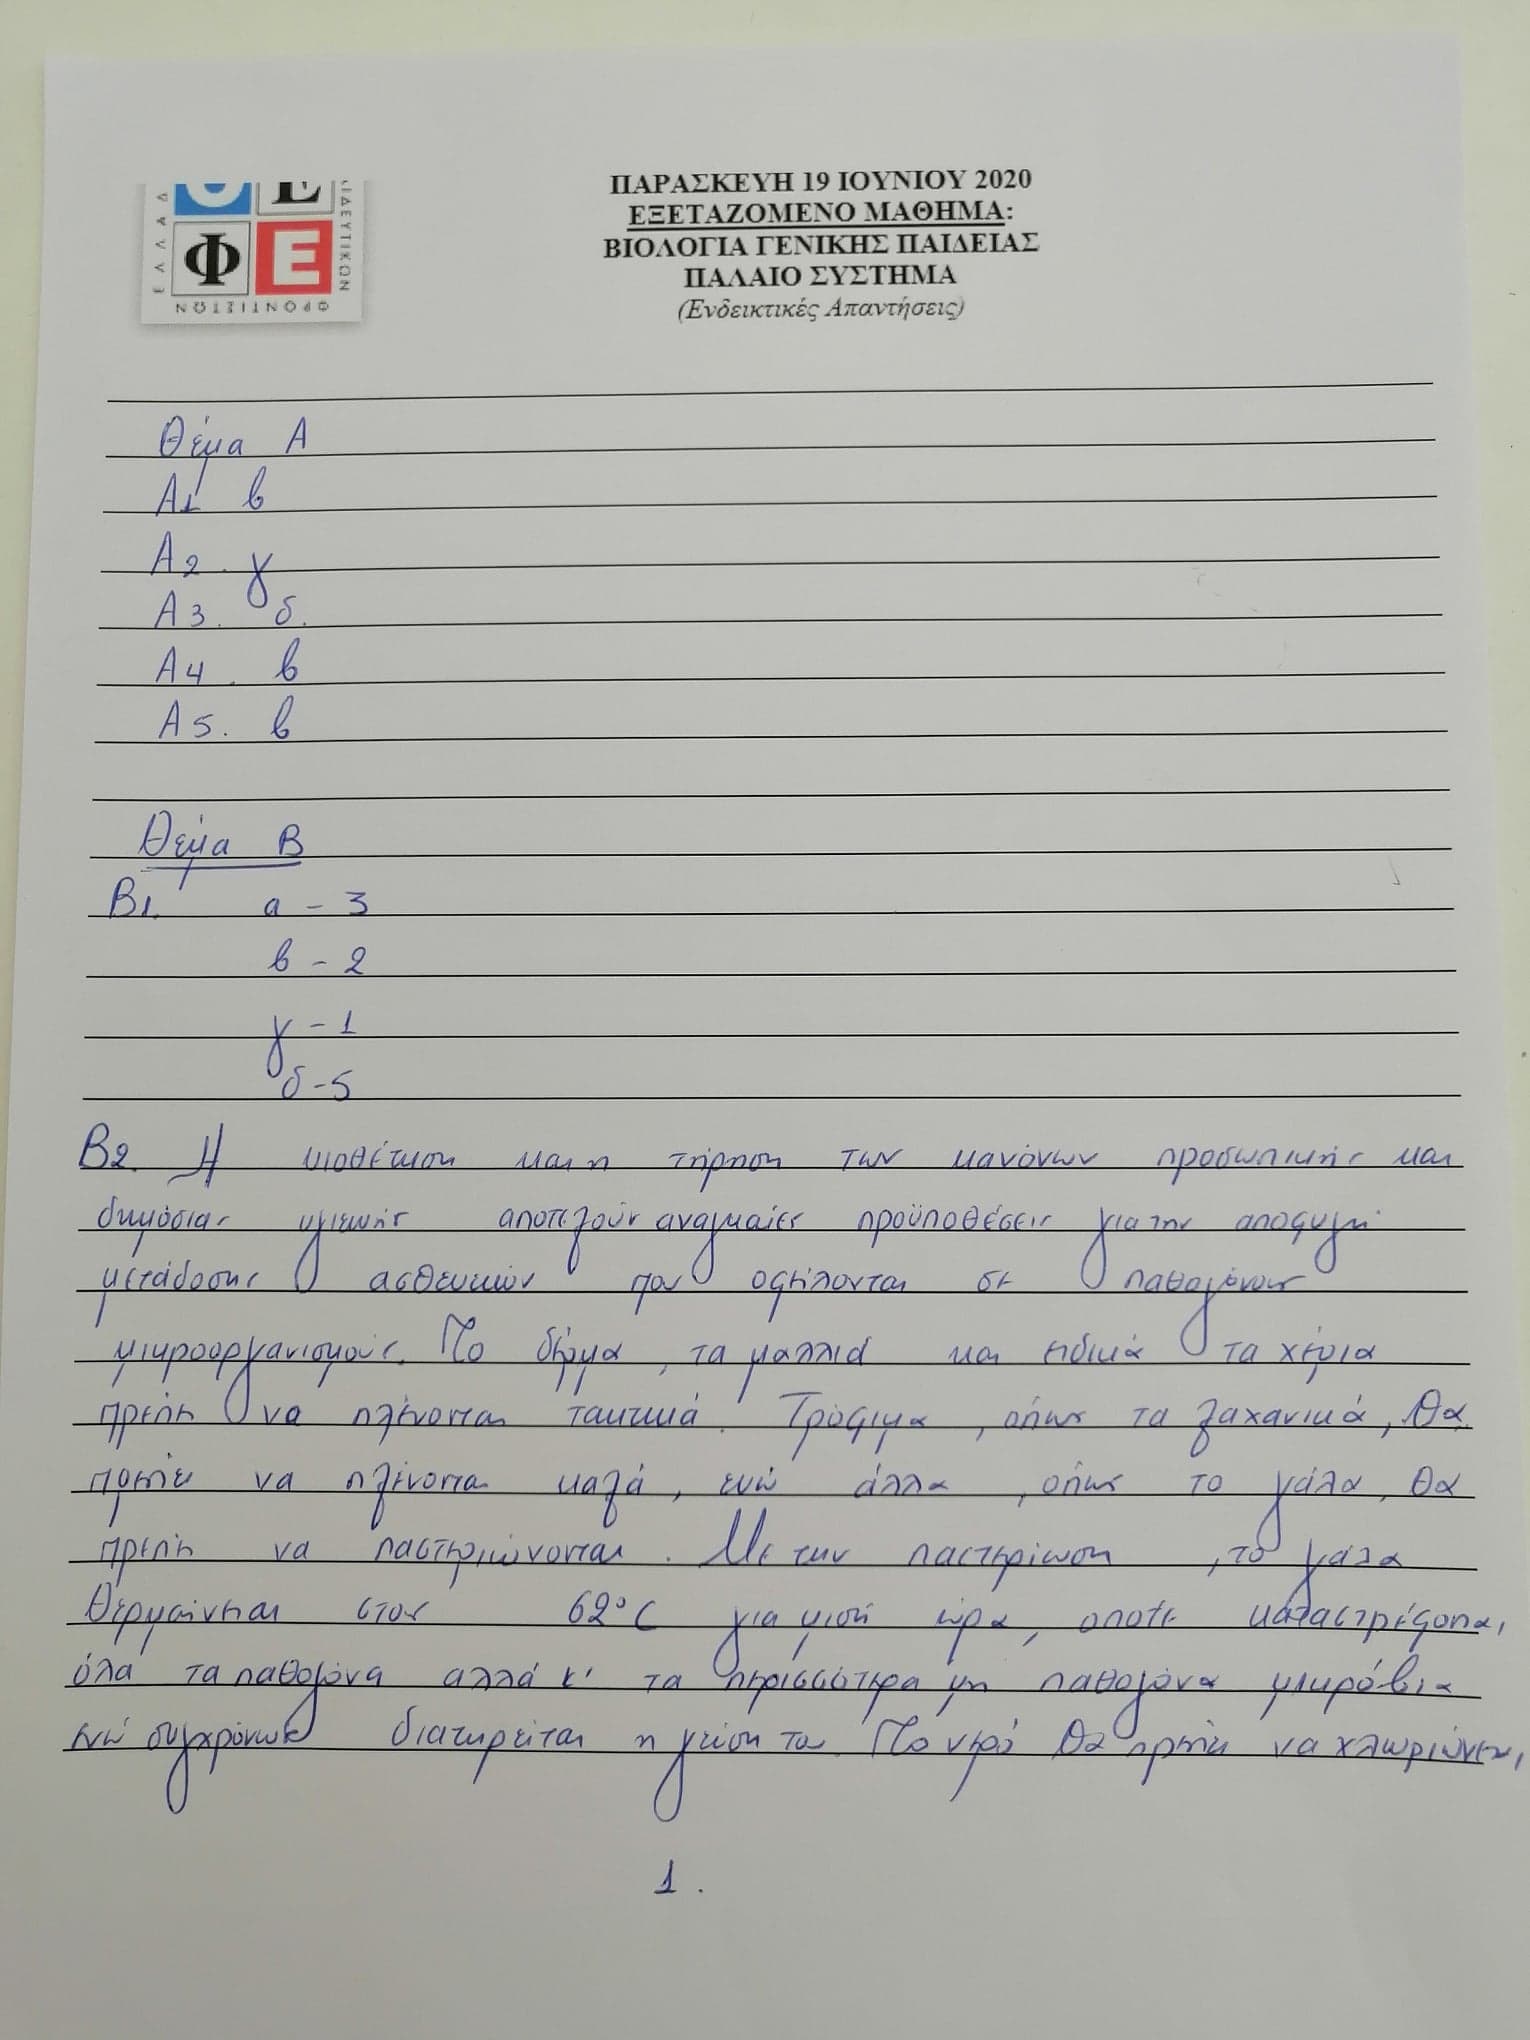 Ε Φ Ε
ΕΛΛΑΔ
ΙΔΕΥΤΙΚΩΝ
ΦΡΟΝΤΙΣΤΩΝ
ΠΑΡΑΣΚΕΥΗ 19 ΙΟΥΝΙΟΥ 2020
ΕΞΕΤΑΖΟΜΕΝΟ ΜΑΘΗΜΑ:
ΒΙΟΛΟΓΙΑ ΓΕΝΙΚΗΣ ΠΑΙΔΕΙΑΣ
ΠΑΛΑΙΟ ΣΥΣΤΗΜΑ
(Ενδεικτικές Απαντήσεις)
Θέμα Α
Α1 β
Α2. γ
Α3. δ.
Α4. β
Α5. β
Θέμα Β
Β1. α - 3
β - 2
γ - 1
δ - 5
Β2. Η υιοθέτηση και η τήρηση των κανόνων προσωπικής και
δημόσιας υγιεινής αποτελούν αναγκαίες προϋποθέσεις για την αποφυγή
μετάδοσης ασθενειών που οφείλονται σε παθογόνους
μικροοργανισμούς. Το δέρμα, τα μαλλιά και ειδικά τα χέρια
πρέπει να πλένονται τακτικά. Τρόφιμα, όπως τα λαχανικά, θα
πρέπει να πλένονται καλά, ενώ άλλα, όπως το γάλα, θα
πρέπει να παστεριώνονται. Με την παστερίωση, το γάλα
θερμαίνεται στους 62°C για μισή ώρα, οπότε καταστρέφονται
όλα τα παθογόνα αλλά κ' τα περισσότερα μη παθογόνα μικρόβια
ενώ συγχρόνως διατηρείται η γεύση του. Το νερό θα πρέπει να χλωριώνεται,
1.